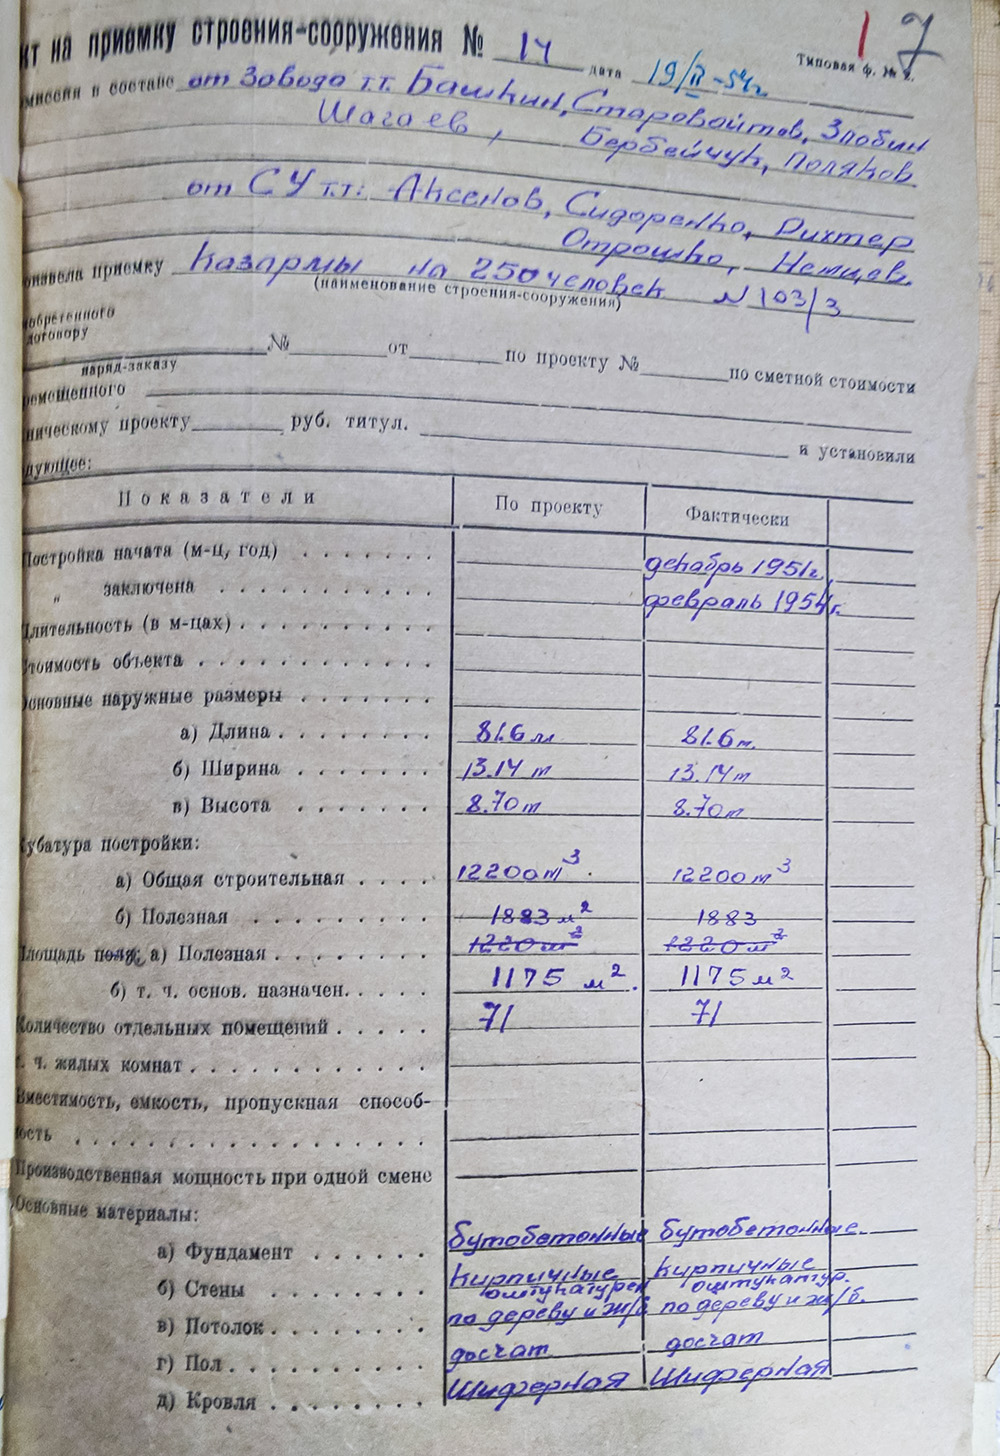 кт на приемку строения-сооружения № 14 дата 19/II-54г. 1 7
Типовая ф. № 2.
миссия в составе от Завода т.т. Башкин, Старовойтов, Злобин
Шагаев, Бербейчук, Поляков.
от СУ т.т: Аксенов, Сидоренко, Рихтер
Отрошко, Немцев.
оизвела приемку Казармы на 250 человек N 103/3
(наименование строения-сооружения)
обретенного
договору
№ от по проекту № по сметной стоимости
наряд-заказу
ремещенного
ническому проекту руб. титул. и установили
дующее:
Показатели По проекту Фактически
Постройка начата (м-ц, год) декабрь 1951г.
„ заключена февраль 1954г.
Длительность (в м-цах)
Стоимость объекта
Основные наружные размеры
а) Длина 81.6 м 81.6м.
б) Ширина 13.14 m 13.14m
в) Высота 8.70m 8.70m
Кубатура постройки:
а) Общая строительная 12200m³. 12200m³
б) Полезная 1883 м² 1883
Площадь пола; а) Полезная 1220 м² 1220 м²
б) т. ч. основ. назначен. 1175 м². 1175 м²
Количество отдельных помещений 71 71
т. ч. жилых комнат
Вместимость, емкость, пропускная способ-
ность
Производственная мощность при одной смене
Основные материалы:
а) Фундамент бутобетонные бутобетонные.
б) Стены Кирпичные Кирпичные
оштукатурен оштукатур.
в) Потолок по дереву и ж/б по дереву и ж/б.
г) Пол досчат досчат
д) Кровля Шиферная Шиферная